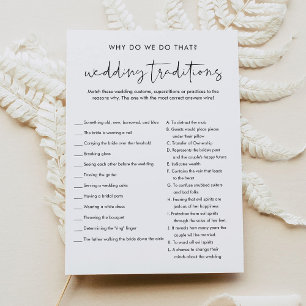 WHY DO WE DO THAT?
wedding traditions
Match these wedding customs, superstitions or practices to the
reasons why. The one with the most correct answers wins!
Something old, new, borrowed, and blue
The bride wearing a veil
Carrying the bride over the threshold
Breaking glass
Seeing each other before the wedding
Tossing the garter
Serving a wedding cake
Having a bridal party
Wearing a white dress
Throwing the bouquet
Determining the "ring" finger
The father walking the bride down the aisle
A. To distract the mob
B. Guests would place pieces
under their pillow
C. Transfer of Ownership
D. Represents the bride's past
and the couple's happy future
E. Indicates wealth
F. Contains the vein that leads
to the heart
G. To confuse snubbed suitors
and bad folks
H. Fearing that evil spirits are
jealous of happiness
I. Protection from evil spirits
through the soles of her feet.
J. It reveals how many years the
couple will be married.
K. To ward off evil spirits
L. A chance to change their
minds about the wedding